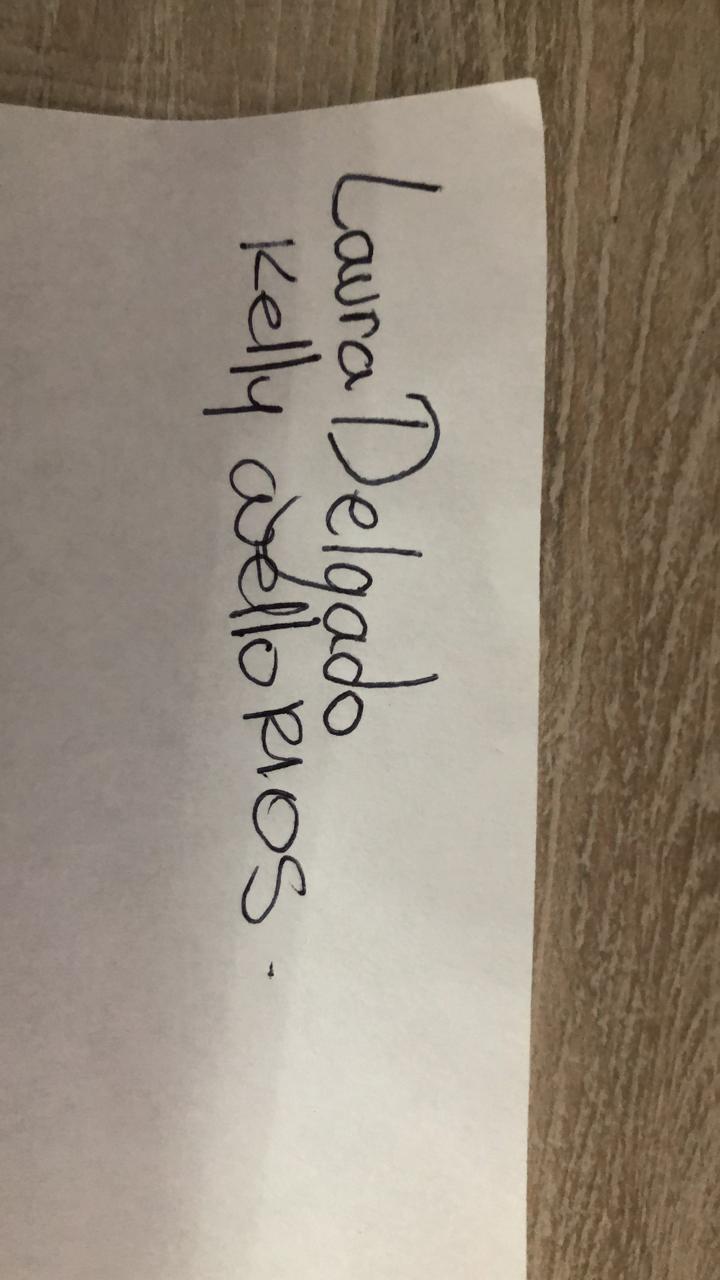 Laura Delgado
Kelly avello RIOS.